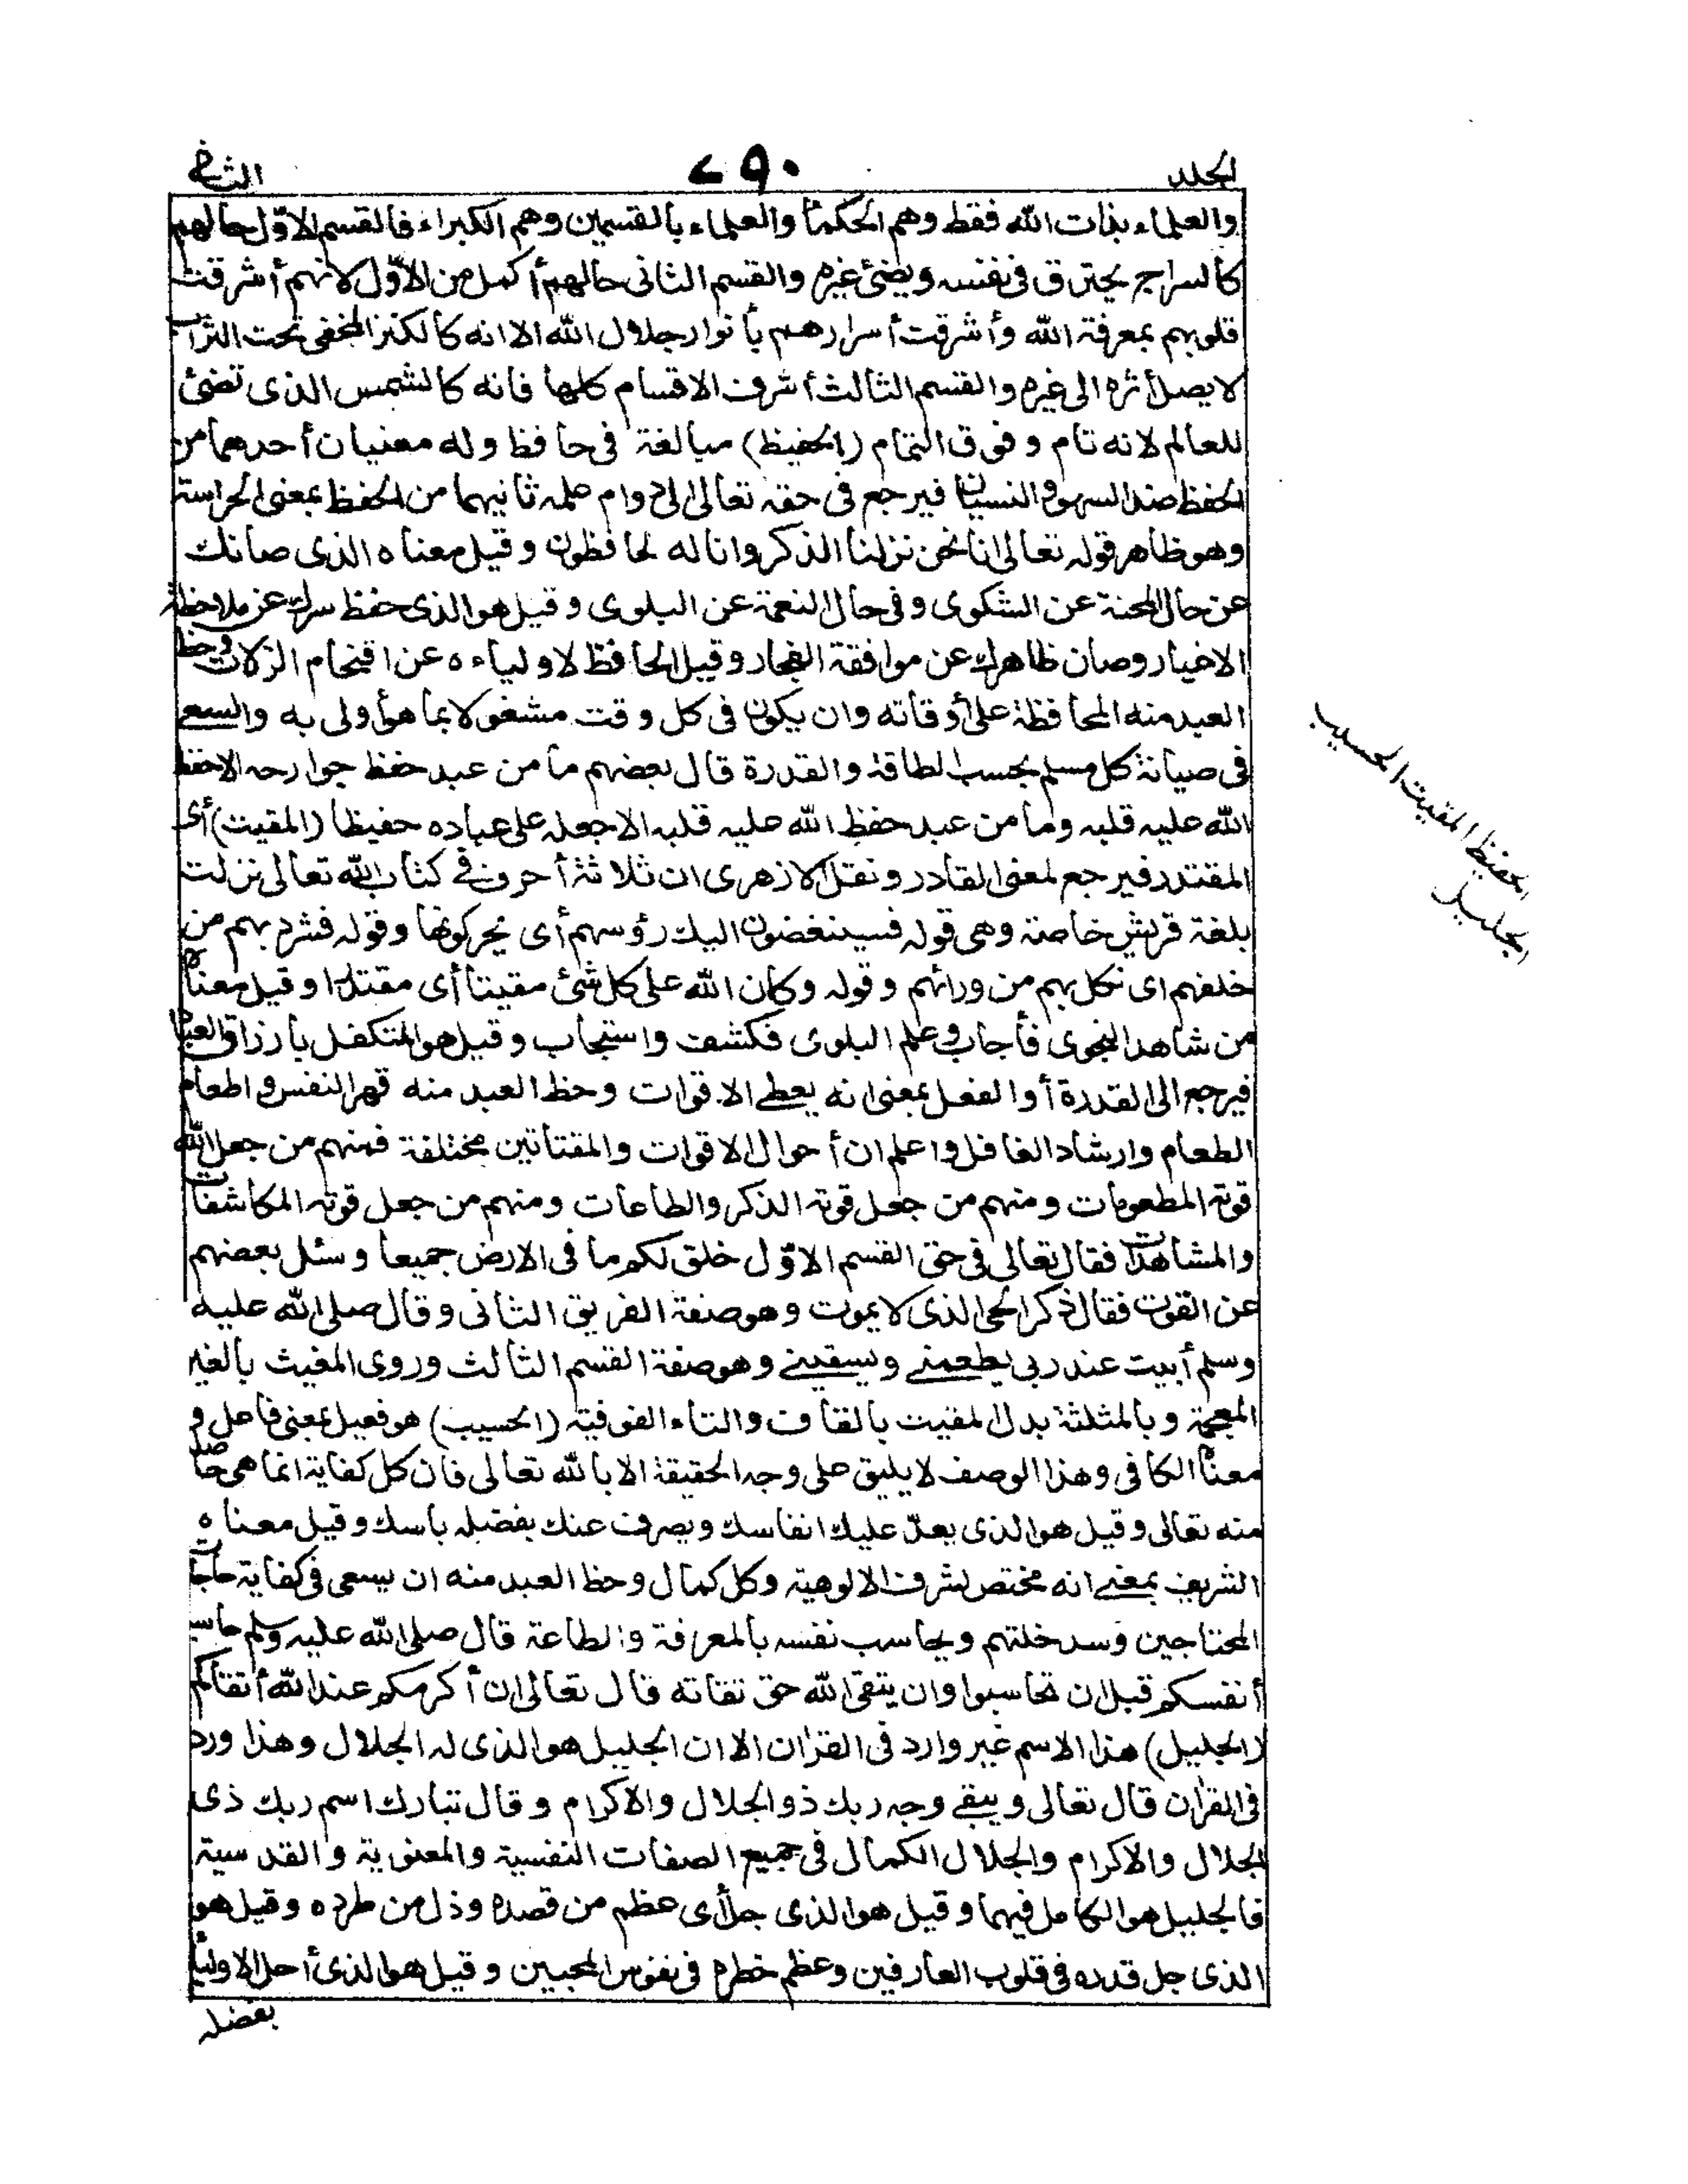 الجلد ٢٩٠ الثانى
والعلماء بذات الله فقط وهم الحكماء والعلماء بالقسمين وهم الكبراء فالقسم الاوّل حالهم
كالسراج يحترق فى نفسه ويضئ غيره والقسم الثانى حالهم أكمل من الاوّل لانهم أشرقت
قلوبهم بمعرفة الله وأشرقت أسرارهم بأنوار جلال الله الا انه كالكنز المخفى تحت التراب
لا يصل أثره الى غيره والقسم الثالث أشرف الاقسام كلها فانه كالشمس الذى تضئ
للعالم لانه تام وفوق التمام (الحفيظ) مبالغة فى حافظ وله معنيان أحدهما من
الحفظ ضد السهو والنسيان فيرجع فى حقه تعالى الى دوام علمه ثانيهما من الحفظ بمعنى الحراسة
وهو ظاهر قوله تعالى انا نحن نزلنا الذكر وانا له لحافظون وقيل معناه الذى صانك
عن حال المحنة عن الشكوى وفى حال النعمة عن البلوى وقيل هو الذى حفظ سرك عن ملاحظة
الاخيار وصان ظاهرك عن موافقة الفجار وقيل الحافظ لاولياءه عن اقتحام الزلات وحظ
العبد منه المحافظة على أوقاته وان يكون فى كل وقت مشغولا بما هو أولى به والسعى
فى صيانة كل مسلم بحسب الطاقة والقدرة قال بعضهم ما من عبد حفظ جوارحه الاحفظ
الله عليه قلبه وما من عبد حفظ الله عليه قلبه الا جعله على عباده حفيظا (المقيت) أى
المقتدر فيرجع لمعنى القادر ونقل الازهرى ان ثلاثة أحرف فى كتاب الله تعالى نزلت
بلغة قريش خاصة وهى قوله فسينغضون اليك رؤسهم أى يحركونها وقوله فشرد بهم من
خلفهم اى نكل بهم من ورائهم وقوله وكان الله على كل شئ مقيتا أى مقتدرا وقيل معناه
من شاهد النجوى فأجاب وعلم البلوى فكشف واستجاب وقيل هو المتكفل بأرزاق العباد
فيرجع الى القدرة أو الفعل بمعنى انه يعطى الاقوات وحظ العبد منه قهر النفس واطعام
الطعام وارشاد الغافل واعلم ان أحوال الاقوات والمقتاتين مختلفة فمنهم من جعل الله
قوته المطعومات ومنهم من جعل قوته الذكر والطاعات ومنهم من جعل قوته المكاشفات
والمشاهدات فقال تعالى فى حق القسم الاوّل خلق لكم ما فى الارض جميعا وسئل بعضهم
عن القوت فقال ذكر الحى الذى لا يموت وهو صفة الفريق الثانى وقال صلى الله عليه
وسلم أبيت عند ربى يطعمنى ويسقينى وهو صفة القسم الثالث وروى المغيث بالغير
المعجمة وبالمثلثة بدل المقيت بالقاف والتاء الفوقية (الحسيب) هو فعيل بمعنى فاعل و
معناه الكافى وهذا الوصف لا يليق على وجه الحقيقة الا بالله تعالى فان كل كفاية انما هى حاصلة
منه تعالى وقيل هو الذى يعدّ عليك انفاسك ويصرف عنك بفضله باسك وقيل معناه
الشريف بمعنى انه مختص بشرف الالوهية وكل كمال وحظ العبد منه ان يسعى فى كفاية حاجات
المحتاجين وسد خلتهم ويحاسب نفسه بالمعرفة والطاعة قال صلى الله عليه وسلم حاسبوا
أنفسكم قبل ان تحاسبوا وان يتقى الله حق تقاته قال تعالى ان أكرمكم عند الله أتقاكم
(الجليل) هذا الاسم غير وارد فى القران الا ان الجليل هو الذى له الجلال وهذا ورد
فى القران قال تعالى ويبقى وجه ربك ذو الجلال والاكرام وقال تبارك اسم ربك ذى
الجلال والاكرام والجلال الكمال فى جميع الصفات النفسية والمعنوية والقدسية
فالجليل هو الكامل فيها وقيل هو الذى جل أى عظم من قصده وذل من طرده وقيل هو
الذى جل قدره فى قلوب العارفين وعظم خطره فى نفوس المحبين وقيل هو الذى أجل الاولياء
بفضله
الحفيظ المقيت الحسيب
الجليل